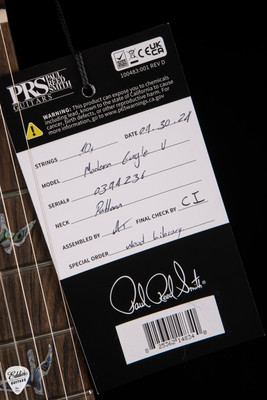 100483:001 REV D
PRS
GUITARS
PAUL
REED
SMITH
WARNING: This product can expose you to chemicals
including lead, known to the State of California to cause
cancer, birth defects, or other reproductive harm. For
more information, go to www.p65warnings.ca.gov
STRINGS 10s DATE 01-30-24
MODEL Modern Eagle V
SERIAL# 0394236
NECK Pattern
ASSEMBLED BY AT FINAL CHECK BY CI
SPECIAL ORDER Wood Library
Paul Reed Smith
Eddie's
GUITARS